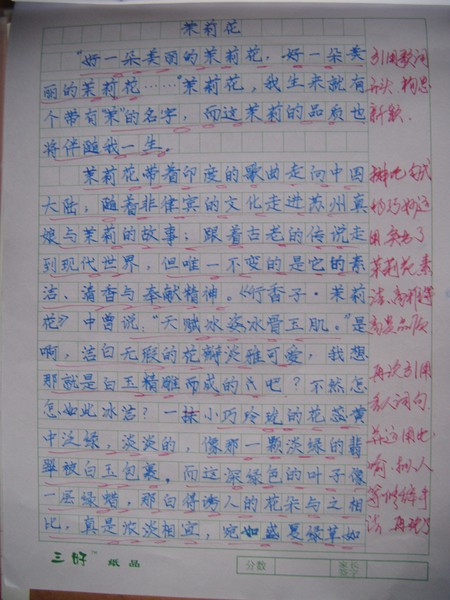 茉莉花
"好一朵美丽的茉莉花,好一朵美
丽的茉莉花……"茉莉花,我生来就有
个带有"茉"的名字,而这茉莉的品质也
将伴随我一生。
茉莉花带着印度的歌曲走向中国
大陆,随着菲律宾的文化走进苏州真
娘与茉莉的故事;跟着古老的传说走
到现代世界,但唯一不变的是它的素
洁、清香与奉献精神。《行香子·茉莉
花》中曾说:"天赋冰姿冰骨玉肌。"是
啊,洁白无瑕的花瓣淡雅可爱,我想
那就是白玉精雕而成的爪吧?不然怎
怎如此冰洁?一抹小巧玲珑的花蕊黄
中泛绿,淡淡的,像那一颗淡绿的翡
翠被白玉包裹。而这深绿色的叶子像
一层绿蜡,那白得诱人的花朵与之相
比,真是浓淡相宜,宛如盛夏绿草如
引用歌词
开头 构思
新颖.
排比句式
巧妙
用 突出了
茉莉花素
洁、高雅等
高贵品质
再次引用
名人词句
并运用比
喻、拟人
等修辞手
法
三好 纸品
分数
家长签字